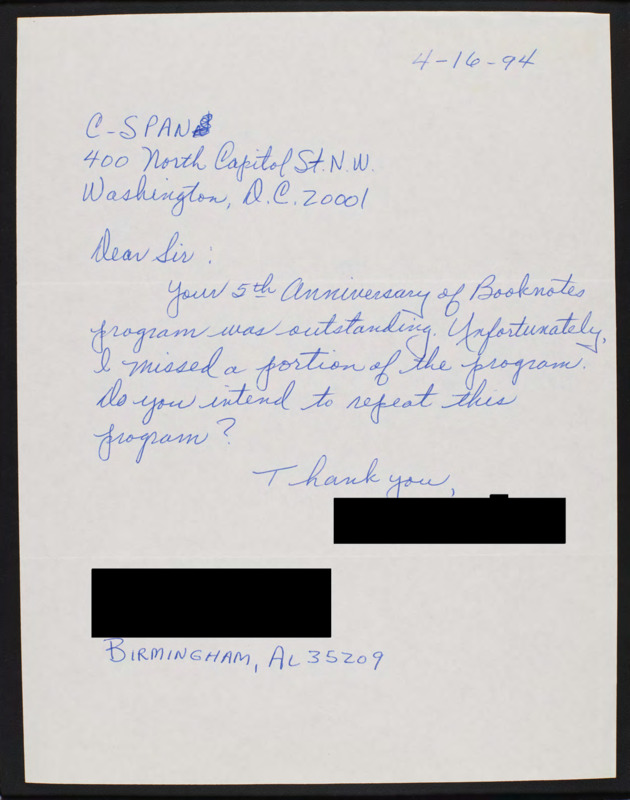 4-16-94
C-SPAN
400 North Capitol St. N.W.
Washington, D.C. 20001
Dear Sir :
Your 5th Anniversary of Booknotes
program was outstanding. Unfortunately,
I missed a portion of the program.
Do you intend to repeat this
program?
Thank you,
BIRMINGHAM, AL 35209